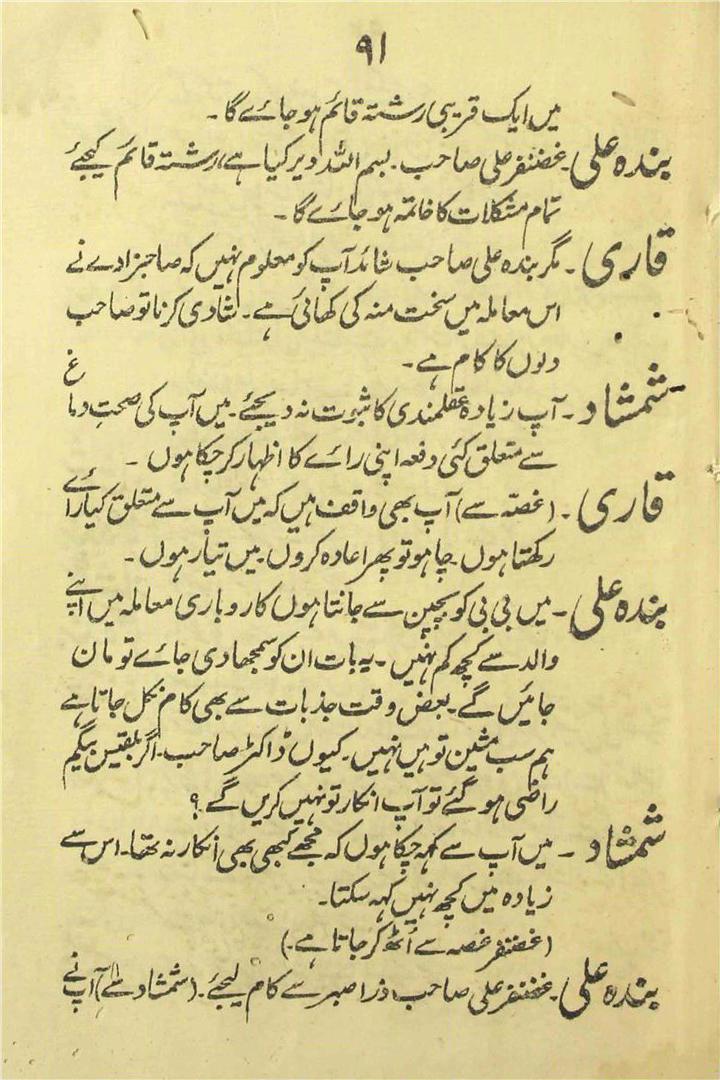 ۹۱
میں ایک قریبی رشتہ قائم ہو جائے گا۔
بندہ علی۔ غضنفر علی صاحب۔ بسم اللہ دیر کیا ہے، رشتہ قائم کیجئے
تمام مشکلات کا خاتمہ ہو جائے گا۔
قاری۔ مگر بندہ علی صاحب شائد آپ کو معلوم نہیں کہ صاحبزادے نے
اس معاملہ میں سخت منہ کی کھائی ہے۔ شادی کرنا تو صاحب
دلوں کا کام ہے۔
شمشاد۔ آپ زیادہ عقلمندی کا ثبوت نہ دیجئے۔ میں آپ کی صحتِ دماغ
سے متعلق کئی دفعہ اپنی رائے کا اظہار کر چکا ہوں۔
قاری۔ (غصّہ سے) آپ بھی واقف ہیں کہ میں آپ سے متعلق کیا رائے
رکھتا ہوں۔ چاہو تو پھر اعادہ کروں۔ میں تیار ہوں۔
بندہ علی۔ میں بی بی کو بچپن سے جانتا ہوں کاروباری معاملہ میں اپنے
والد سے کچھ کم نہیں۔ یہ بات ان کو سمجھا دی جائے تو مان
جائیں گے۔ بعض وقت جذبات سے بھی کام نکل جاتا ہے
ہم سب مشین تو ہیں نہیں۔ کیوں ڈاکٹر صاحب۔ اگر بلقیس بیگم
راضی ہو گئے تو آپ انکار تو نہیں کریں گے؟
شمشاد۔ میں آپ سے کہہ چکا ہوں کہ مجھے کبھی بھی انکار نہ تھا۔ اس سے
زیادہ میں کچھ نہیں کہہ سکتا۔
(غضنفر غصہ سے اُٹھ کر جاتا ہے۔)
بندہ علی۔ غضنفر علی صاحب ذرا صبر سے کام لیجئے۔ (شمشاد سے) آپ نے